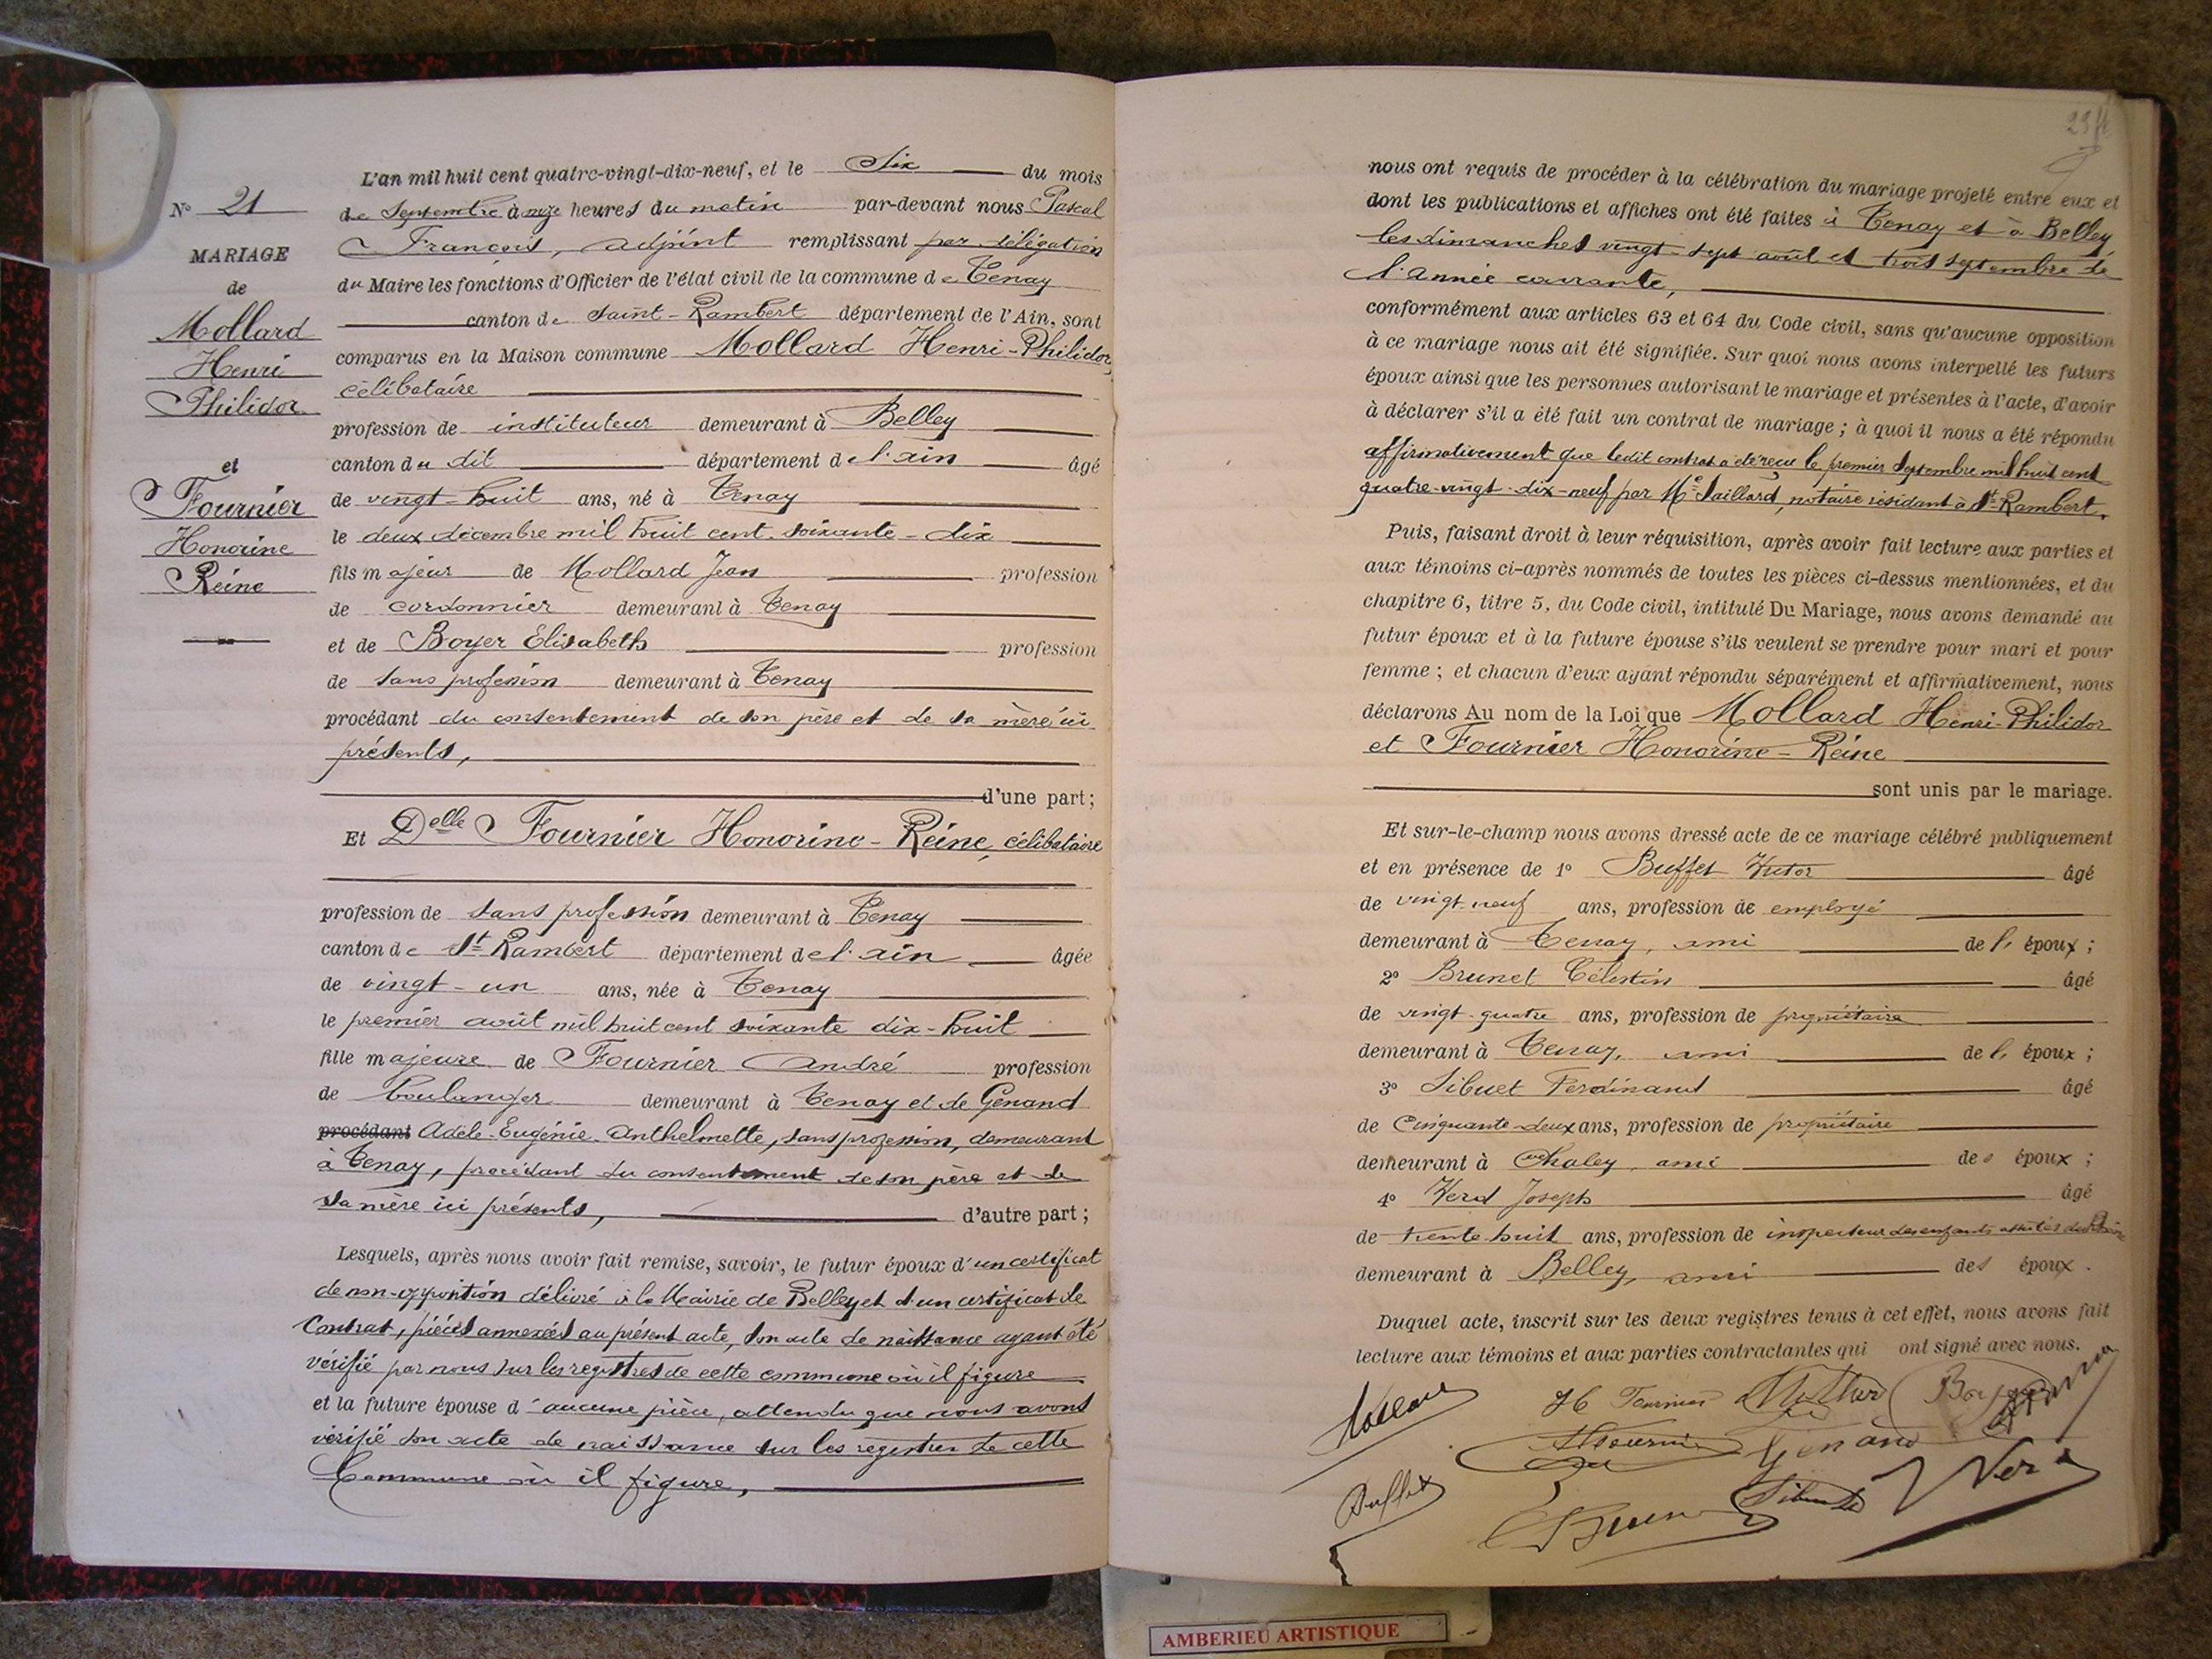 N° 21
MARIAGE
de
Mollard
Henri
Philidor
et
Fournier
Honorine
Reine
L'an mil huit cent quatre-vingt-dix-neuf, et le Six du mois
de Septembre à onze heures du matin par-devant nous Pascal
François, adjoint remplissant par délégation
du Maire les fonctions d'Officier de l'état civil de la commune de Tenay
canton de Saint-Rambert département de l'Ain, sont
comparus en la Maison commune Mollard Henri-Philidor,
célibataire
profession de instituteur demeurant à Belley
canton du dit département de l'ain âgé
de vingt huit ans, né à Tenay
le deux décembre mil huit cent soixante-dix
fils majeur de Mollard Jean profession
de cordonnier demeurant à Tenay
et de Boyer Elisabeth profession
de sans profession demeurant à Tenay
procédant du consentement de son père et de sa mère ici
présents,
d'une part;
Et Delle Fournier Honorine-Reine, célibataire
profession de sans profession demeurant à Tenay
canton de St Rambert département de l'ain âgée
de vingt-un ans, née à Tenay
le premier août mil huit cent soixante dix-huit
fille majeure de Fournier André profession
de boulanger demeurant à Tenay et de Genand
procédant Adèle-Eugénie-Anthelmette, sans profession, demeurant
à Tenay, procédant du consentement de son père et de
sa mère ici présents, d'autre part;
Lesquels, après nous avoir fait remise, savoir, le futur époux d'un certificat
de non-opposition délivré à la Mairie de Belley et d'un certificat de
Contrat, pièces annexées au présent acte, son acte de naissance ayant été
vérifié par nous sur les registres de cette commune où il figure
et la future épouse d'aucune pièce, attendu que nous avons
vérifié son acte de naissance sur les registres de cette
Commune où il figure,
nous ont requis de procéder à la célébration du mariage projeté entre eux et
dont les publications et affiches ont été faites à Tenay et à Belley
les dimanches vingt-sept août et trois septembre de
l'année courante,
conformément aux articles 63 et 64 du Code civil, sans qu'aucune opposition
à ce mariage nous ait été signifiée. Sur quoi nous avons interpellé les futurs
époux ainsi que les personnes autorisant le mariage et présentes à l'acte, d'avoir
à déclarer s'il a été fait un contrat de mariage; à quoi il nous a été répondu
affirmativement que ledit contrat a été reçu le premier Septembre mil huit cent
quatre-vingt-dix-neuf par Me Saillard, notaire résidant à St-Rambert.
Puis, faisant droit à leur réquisition, après avoir fait lecture aux parties et
aux témoins ci-après nommés de toutes les pièces ci-dessus mentionnées, et du
chapitre 6, titre 5, du Code civil, intitulé Du Mariage, nous avons demandé au
futur époux et à la future épouse s'ils veulent se prendre pour mari et pour
femme; et chacun d'eux ayant répondu séparément et affirmativement, nous
déclarons Au nom de la Loi que Mollard Henri-Philidor
et Fournier Honorine-Reine
sont unis par le mariage.
Et sur-le-champ nous avons dressé acte de ce mariage célébré publiquement
et en présence de 1° Buffet Victor âgé
de vingt-neuf ans, profession de employé
demeurant à Tenay, ami de l' époux;
2° Brunet Célestin âgé
de vingt-quatre ans, profession de propriétaire
demeurant à Tenay, ami de l' époux;
3° Sibuet Ferdinand âgé
de Cinquante-deux ans, profession de propriétaire
demeurant à Chaley, ami des époux;
4° Verd Joseph âgé
de trente huit ans, profession de inspecteur des enfants assistés
demeurant à Belley, ami des époux.
Duquel acte, inscrit sur les deux registres tenus à cet effet, nous avons fait
lecture aux témoins et aux parties contractantes qui ont signé avec nous.
H Fournier
Genand
Buffet
Verd
AMBERIEU ARTISTIQUE